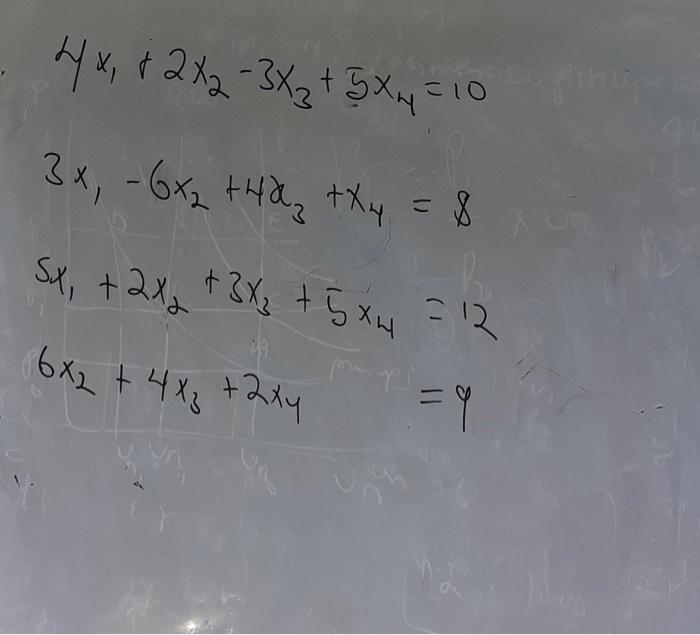 4x₁ + 2x₂ - 3x₃ + 5x₄ = 10
3x₁ - 6x₂ + 4x₃ + x₄ = 8
5x₁ + 2x₂ + 3x₃ + 5x₄ = 12
6x₂ + 4x₃ + 2x₄ = 9